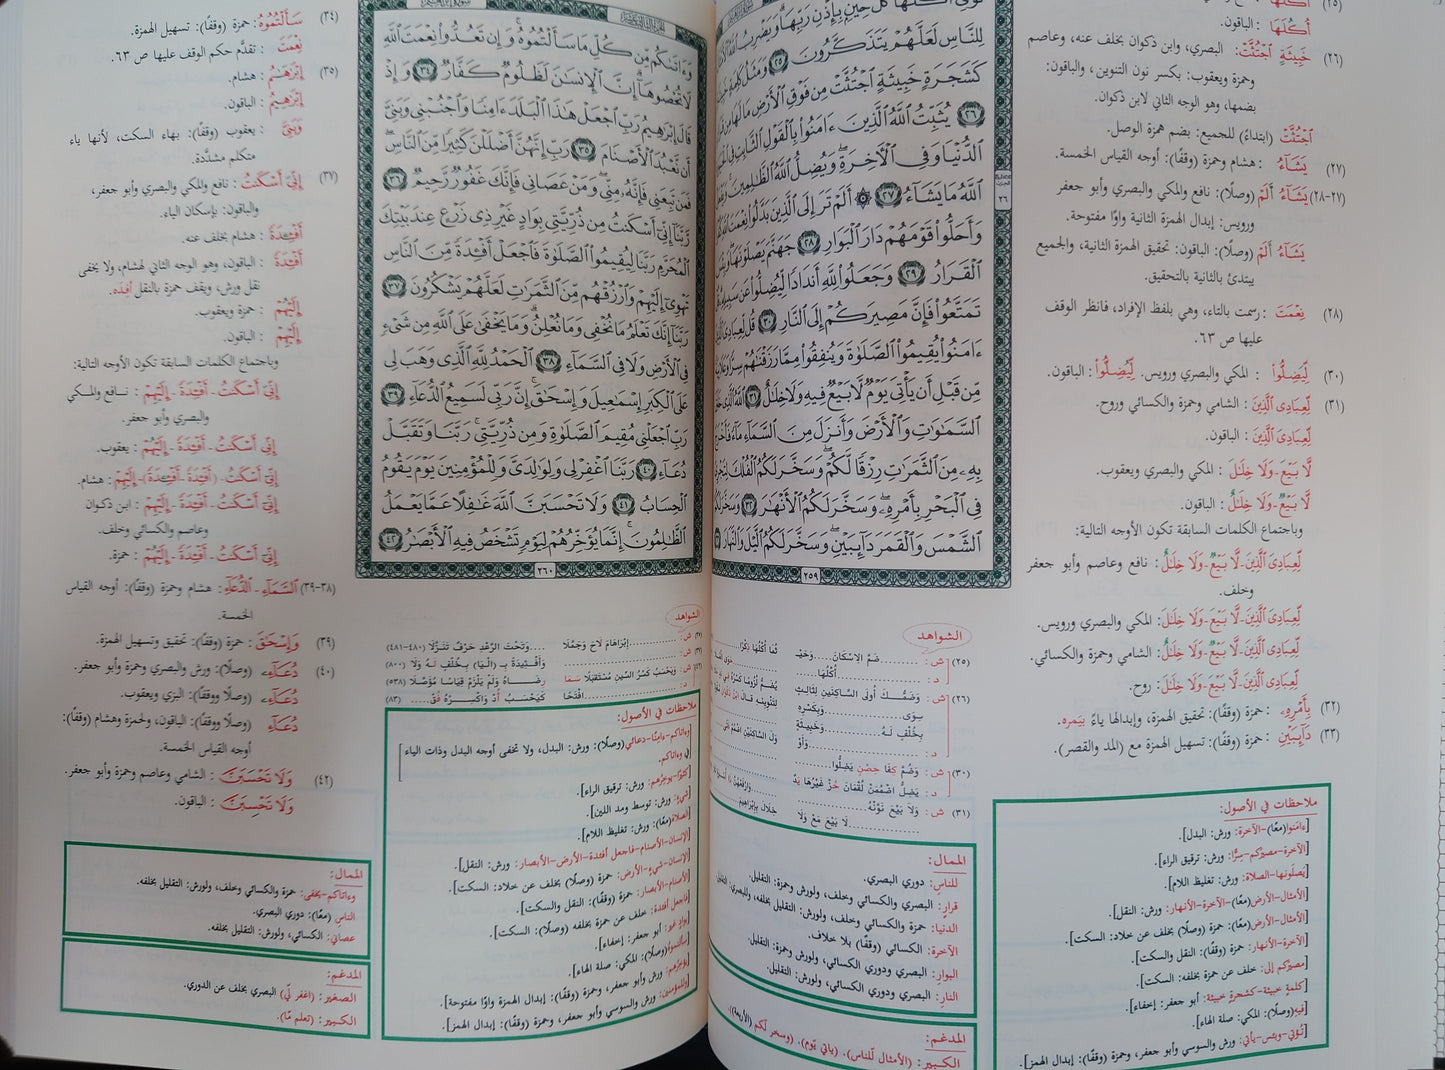 أُكُلَهَا : الباقون.
(٢٦) خَبِيثَةٍ ٱجْتُثَّتْ: البصري، وابن ذكوان بخلف عنه، وعاصم
وحمزة ويعقوب: بكسر نون التنوين، والباقون:
بضمها، وهو الوجه الثاني لابن ذكوان.
ٱجْتُثَّتْ (ابتداءً) للجميع: بضم همزة الوصل.
(٢٧) يَشَآءُ : هشام وحمزة (وقفًا): أوجه القياس الخمسة.
(٢٧-٢٨) يَشَآءُ أَلَمْ (وصلًا): نافع والمكي والبصري وأبو جعفر
ورويس: إبدال الهمزة الثانية واوًا مفتوحة.
يَشَآءُ أَلَمْ (وصلًا): الباقون: تحقيق الهمزة الثانية، والجميع
يبتدئ بالثانية بالتحقيق.
(٢٨) نِعْمَتَ : رسمت بالتاء، وهي بلفظ الإفراد، فانظر الوقف
عليها ص ٦٣.
(٣٠) لِّيَضِلُّوا۟ : المكي والبصري ورويس. لِّيُضِلُّوا۟ : الباقون.
(٣١) لِّعِبَادِى ٱلَّذِينَ : الشامي وحمزة والكسائي وروح.
لِّعِبَادِىَ ٱلَّذِينَ : الباقون.
لَّا بَيْعَ - وَلَا خِلَٰلَ : المكي والبصري ويعقوب.
لَّا بَيْعٌ - وَلَا خِلَٰلٌ : الباقون.
وباجتماع الكلمات السابقة تكون الأوجه التالية:
لِّعِبَادِىَ ٱلَّذِينَ - لَّا بَيْعٌ - وَلَا خِلَٰلٌ : نافع وعاصم وأبو جعفر
وخلف.
لِّعِبَادِىَ ٱلَّذِينَ - لَّا بَيْعَ - وَلَا خِلَٰلَ: المكي والبصري ورويس.
لِّعِبَادِى ٱلَّذِينَ - لَّا بَيْعٌ - وَلَا خِلَٰلٌ: الشامي وحمزة والكسائي.
لِّعِبَادِى ٱلَّذِينَ - لَّا بَيْعَ - وَلَا خِلَٰلَ: روح.
(٣٢) بِأَمْرِهِۦ : حمزة (وقفًا): تحقيق الهمزة، وإبدالها ياءً بيَمره.
(٣٣) دَآئِبَيْنِ : حمزة (وقفًا): تسهيل الهمزة مع (المد والقصر).
ملاحظات في الأصول:
[ءامَنوا(معًا)-الآخرة: ورش: البدل].
[الآخرة-مصيرَكم-سِرًّا: ورش: ترقيق الراء].
[يَصلَونها-الصلاة: ورش: تغليظ اللام].
[الأمثال-الأرض(معًا)-الآخرة-الأنهار: ورش: النقل].
[الأمثال-الأرض(معًا): حمزة (وصلًا) بخلف عن خلاد: السكت].
[الآخرة-الأنهار: حمزة (وقفًا): النقل والسكت].
[مصيرَكم إلى: خلف عن حمزة بخلفه: السكت].
[كلمةٍ خبيثة-كشجرةٍ خبيثة: أبو جعفر: إخفاء].
[فيهِ(وصلًا): المكي: صلة الهاء].
[تُؤتي-وبئس-يأتيَ: ورش والسوسي وأبو جعفر، وحمزة (وقفًا): إبدال الهمز].
لِلنَّاسِ لَعَلَّهُمْ يَتَذَكَّرُونَ ٢٥ وَمَثَلُ كَلِمَةٍ خَبِيثَةٍ
كَشَجَرَةٍ خَبِيثَةٍ ٱجْتُثَّتْ مِن فَوْقِ ٱلْأَرْضِ مَا لَهَا مِن
٢٦ يُثَبِّتُ ٱللَّهُ ٱلَّذِينَ ءَامَنُوا۟ بِٱلْقَوْلِ ٱلثَّابِتِ فِى
ٱلدُّنْيَا وَفِى ٱلْـَٔاخِرَةِ وَيُضِلُّ ٱللَّهُ ٱلظَّٰلِمِينَ
ٱللَّهُ مَا يَشَآءُ ٢٧ أَلَمْ تَرَ إِلَى ٱلَّذِينَ بَدَّلُوا۟ نِعْمَتَ ٱللَّهِ
وَأَحَلُّوا۟ قَوْمَهُمْ دَارَ ٱلْبَوَارِ ٢٨ جَهَنَّمَ يَصْلَوْنَهَا وَبِئْسَ
ٱلْقَرَارُ ٢٩ وَجَعَلُوا۟ لِلَّهِ أَندَادًا لِّيُضِلُّوا۟ عَن سَبِيلِهِ
تَمَتَّعُوا۟ فَإِنَّ مَصِيرَكُمْ إِلَى ٱلنَّارِ ٣٠ قُل لِّعِبَادِىَ
ءَامَنُوا۟ يُقِيمُوا۟ ٱلصَّلَوٰةَ وَيُنفِقُوا۟ مِمَّا رَزَقْنَٰهُمْ سِرًّا
مِّن قَبْلِ أَن يَأْتِىَ يَوْمٌ لَّا بَيْعٌ فِيهِ وَلَا خِلَٰلٌ ٣١ ٱللَّهُ ٱلَّذِى
ٱلسَّمَٰوَٰتِ وَٱلْأَرْضَ وَأَنزَلَ مِنَ ٱلسَّمَآءِ مَآءً فَأَخْرَجَ
بِهِۦ مِنَ ٱلثَّمَرَٰتِ رِزْقًا لَّكُمْ وَسَخَّرَ لَكُمُ ٱلْفُلْكَ
فِى ٱلْبَحْرِ بِأَمْرِهِۦ وَسَخَّرَ لَكُمُ ٱلْأَنْهَٰرَ ٣٢ وَسَخَّرَ
ٱلشَّمْسَ وَٱلْقَمَرَ دَآئِبَيْنِ وَسَخَّرَ لَكُمُ ٱلَّيْلَ وَٱلنَّهَارَ
٢٥٩
الشواهد
(٢٥) ش: ............ضَمُّ الِاسْكَانِ
د: ............أُكْلُهَا
(٢٦) ش: وَضَمُّكَ أُولَى السَّاكِنَيْنِ لِثَالِثٍ
سِوَى ............ وَبِكَسْرِهِ
بِخُلْفٍ لَهُ ............ وَخَبِيثَةٍ
(٣٠) ش: وَضُمَّ كِفَا حِصْنٍ يَضِلُّوا
د: يَضِلَّ اضْمُمَنْ لُقْمَانَ حُزْ غَيْرُهَا يَدٌ
(٣١) ش: وَلَا بَيْعَ نَوِّنْهُ
لَا بَيْعَ مَعْ وَلَا خِلَالَ بِإِبْرَاهِيمَ
الممال:
للناسِ: دوري البصري.
قرارٍ: البصري والكسائي وخلف، ولورش وحمزة: التقليل.
الدنيا: حمزة والكسائي وخلف، ولورش: التقليل بخلفه، وللبصري: التقليل
الآخرة: الكسائي (وقفًا) بلا خلاف.
البوارِ: البصري ودوري الكسائي، ولورش وحمزة: التقليل.
النارِ: البصري ودوري الكسائي، ولورش: التقليل.
المدغم:
الكبير: (الأمثال لّلناس). (ياتي يّوم). (وسخر لّكم (الأربعة)).
وَءَاتَىٰكُم مِّن كُلِّ مَا سَأَلْتُمُوهُ وَإِن تَعُدُّوا۟ نِعْمَتَ ٱللَّهِ
لَا تُحْصُوهَآ إِنَّ ٱلْإِنسَٰنَ لَظَلُومٌ كَفَّارٌ ٣٤ وَإِذْ
قَالَ إِبْرَٰهِيمُ رَبِّ ٱجْعَلْ هَٰذَا ٱلْبَلَدَ ءَامِنًا وَٱجْنُبْنِى وَبَنِىَّ
أَن نَّعْبُدَ ٱلْأَصْنَامَ ٣٥ رَبِّ إِنَّهُنَّ أَضْلَلْنَ كَثِيرًا مِّنَ ٱلنَّاسِ
فَمَن تَبِعَنِى فَإِنَّهُۥ مِنِّى وَمَنْ عَصَانِى فَإِنَّكَ غَفُورٌ رَّحِيمٌ ٣٦
رَّبَّنَآ إِنِّىٓ أَسْكَنتُ مِن ذُرِّيَّتِى بِوَادٍ غَيْرِ ذِى زَرْعٍ عِندَ بَيْتِكَ
ٱلْمُحَرَّمِ رَبَّنَا لِيُقِيمُوا۟ ٱلصَّلَوٰةَ فَٱجْعَلْ أَفْـِٔدَةً مِّنَ ٱلنَّاسِ
تَهْوِىٓ إِلَيْهِمْ وَٱرْزُقْهُم مِّنَ ٱلثَّمَرَٰتِ لَعَلَّهُمْ يَشْكُرُونَ ٣٧
رَبَّنَآ إِنَّكَ تَعْلَمُ مَا نُخْفِى وَمَا نُعْلِنُ وَمَا يَخْفَىٰ عَلَى ٱللَّهِ مِن شَىْءٍ
فِى ٱلْأَرْضِ وَلَا فِى ٱلسَّمَآءِ ٣٨ ٱلْحَمْدُ لِلَّهِ ٱلَّذِى وَهَبَ لِى
عَلَى ٱلْكِبَرِ إِسْمَٰعِيلَ وَإِسْحَٰقَ إِنَّ رَبِّى لَسَمِيعُ ٱلدُّعَآءِ ٣٩
رَبِّ ٱجْعَلْنِى مُقِيمَ ٱلصَّلَوٰةِ وَمِن ذُرِّيَّتِى رَبَّنَا وَتَقَبَّلْ
دُعَآءِ ٤٠ رَبَّنَا ٱغْفِرْ لِى وَلِوَٰلِدَىَّ وَلِلْمُؤْمِنِينَ يَوْمَ يَقُومُ
ٱلْحِسَابُ ٤١ وَلَا تَحْسَبَنَّ ٱللَّهَ غَٰفِلًا عَمَّا يَعْمَلُ
ٱلظَّٰلِمُونَ إِنَّمَا يُؤَخِّرُهُمْ لِيَوْمٍ تَشْخَصُ فِيهِ ٱلْأَبْصَٰرُ ٤٢
٢٦٠
(٣٤) سَأَلْتُمُوهُ : حمزة (وقفًا): تسهيل الهمزة.
نِعْمَتَ : تقدَّم حكم الوقف عليها ص ٦٣.
(٣٥) إِبْرَٰهَٰمُ : هشام.
إِبْرَٰهِيمُ : الباقون.
وَبَنِىَّ : يعقوب (وقفًا): بهاء السكت، لأنها ياء
متكلم مشدَّدة.
(٣٧) إِنِّىَ أَسْكَنتُ : نافع والمكي والبصري وأبو جعفر،
والباقون: بإسكان الياء.
أَفْـِٔيدَةً : هشام بخلف عنه.
أَفْـِٔدَةً : الباقون، وهو الوجه الثاني لهشام، ولا يخفى
نقل ورش، ويقف حمزة بالنقل أَفِدَه.
إِلَيْهُمْ : حمزة ويعقوب.
إِلَيْهِمْ : الباقون.
وباجتماع الكلمات السابقة تكون الأوجه التالية:
إِنِّىَ أَسْكَنتُ - أَفْـِٔدَةً - إِلَيْهِمْ : نافع والمكي
والبصري وأبو جعفر.
إِنِّىٓ أَسْكَنتُ - أَفْـِٔدَةً - إِلَيْهُمْ : يعقوب.
إِنِّىٓ أَسْكَنتُ - (أَفْـِٔيدَةً - أَفْـِٔدَةً) - إِلَيْهِمْ: هشام.
إِنِّىٓ أَسْكَنتُ - أَفْـِٔدَةً - إِلَيْهِمْ : ابن ذكوان
وعاصم والكسائي وخلف.
إِنِّىٓ أَسْكَنتُ - أَفْـِٔدَةً - إِلَيْهُمْ : حمزة.
(٣٨-٣٩) ٱلسَّمَآءِ - ٱلدُّعَآءِ : هشام وحمزة (وقفًا): أوجه القياس
الخمسة.
(٣٩) وَإِسْحَٰقَ : حمزة (وقفًا): تحقيق وتسهيل الهمزة.
(٤٠) دُعَآءِۦ (وصلًا): ورش والبصري وحمزة وأبو جعفر.
دُعَآءِۦ (وصلًا ووقفًا): البزي ويعقوب.
دُعَآءِ (وصلًا ووقفًا): الباقون، ولحمزة وهشام (وقفًا):
أوجه القياس الخمسة.
(٤٢) وَلَا تَحْسَبَنَّ : الشامي وعاصم وحمزة وأبو جعفر.
وَلَا تَحْسِبَنَّ : الباقون.
الشواهد
............إِبْرَاهَامَ لَاحَ وَجَمَّلَا ....وَتَحْتَ الرَّعْدِ حَرْفٌ تَنَزَّلَا (٤٨٠-٤٨١)
وَأَفْئِيدَةً بِـ الْيَا بِخُلْفٍ لَهُ وَلَا (٨٠٠)
وَيَحْسَبُ كَسْرُ السِّينِ مُسْتَقْبَلًا سَمَا رِضَاهُ وَلَمْ يَلْزَمْ قِيَاسًا مُؤَصَّلَا (٥٣٨)
د: ............ افْتَحًا كَيَحْسَبُ أُدْ وَاكْسِرْهُ فُقْ.... (٨٣)
ملاحظات في الأصول:
[وءاتاكم-ءامنًا-دعائي(وصلًا): ورش: البدل، ولا تخفى أوجه البدل وذات الياء
في وءاتاكم].
[كثيرًا-يوخرهم: ورش: ترقيق الراء].
[شيء: ورش: توسط ومد اللين].
[الصلاة(معًا): ورش: تغليظ اللام].
[الإنسان-الأصنام-فاجعل أفئدة-الأرض-الأبصار: ورش: النقل].
[الإنسان-شيء-الأرض: حمزة (وصلًا) بخلف عن خلاد: السكت].
[الأصنام-الأبصار: حمزة (وقفًا): النقل والسكت].
[فاجعل أفئدة: خلف عن حمزة بخلفه (وصلًا): السكت].
[بوادٍ غير: أبو جعفر: إخفاء].
[سألتموهُ(وصلًا): المكي: صلة الهاء].
[يؤخرهم: ورش وأبو جعفر، وحمزة (وقفًا): إبدال الهمزة واوًا مفتوحة].
[وللمؤمنين: ورش والسوسي وأبو جعفر، وحمزة (وقفًا): إبدال الهمز].
الممال:
وءاتاكم-يخفى: حمزة والكسائي وخلف، ولورش: التقليل بخلفه.
الناسِ (معًا): دوري البصري.
عصاني: الكسائي، ولورش: التقليل بخلفه.
المدغم:
الصغير: (اغفر لّي) البصري بخلف عن الدوري.
الكبير: (تعلم مّا).